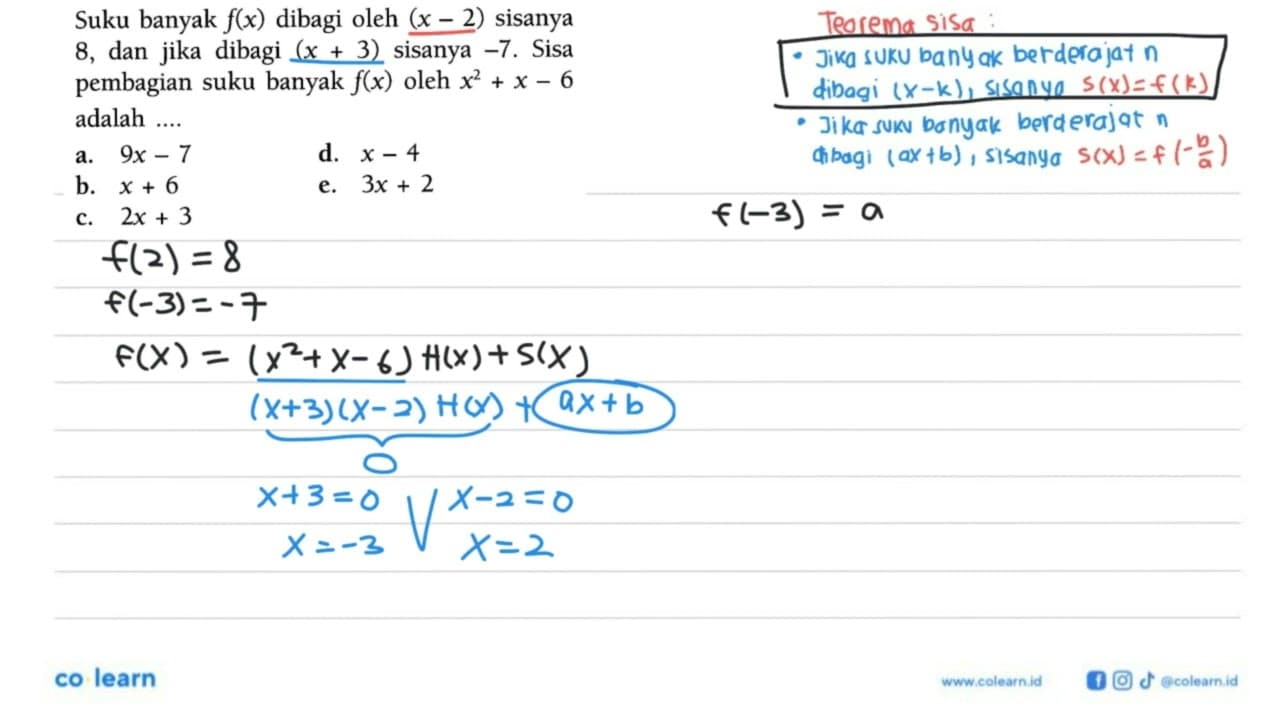 Suku banyak f(x) dibagi oleh (x – 2) sisanya
8, dan jika dibagi (x + 3) sisanya –7. Sisa
pembagian suku banyak f(x) oleh x² + x – 6
adalah ....
a. 9x – 7
b. x + 6
c. 2x + 3
d. x – 4
e. 3x + 2
Teorema sisa :
• Jika suku banyak berderajat n
dibagi (x-k), sisanya S(x)=f(k)
• Jika suku banyak berderajat n
dibagi (ax+b), sisanya S(x) = f(-b/a)
f(-3) = a
f(2) = 8
f(-3) = -7
f(x) = (x²+x-6) H(x) + S(x)
(x+3)(x-2) H(x) + ax+b
0
x+3=0 V x-2=0
x=-3 x=2
co learn
www.colearn.id
@colearn.id